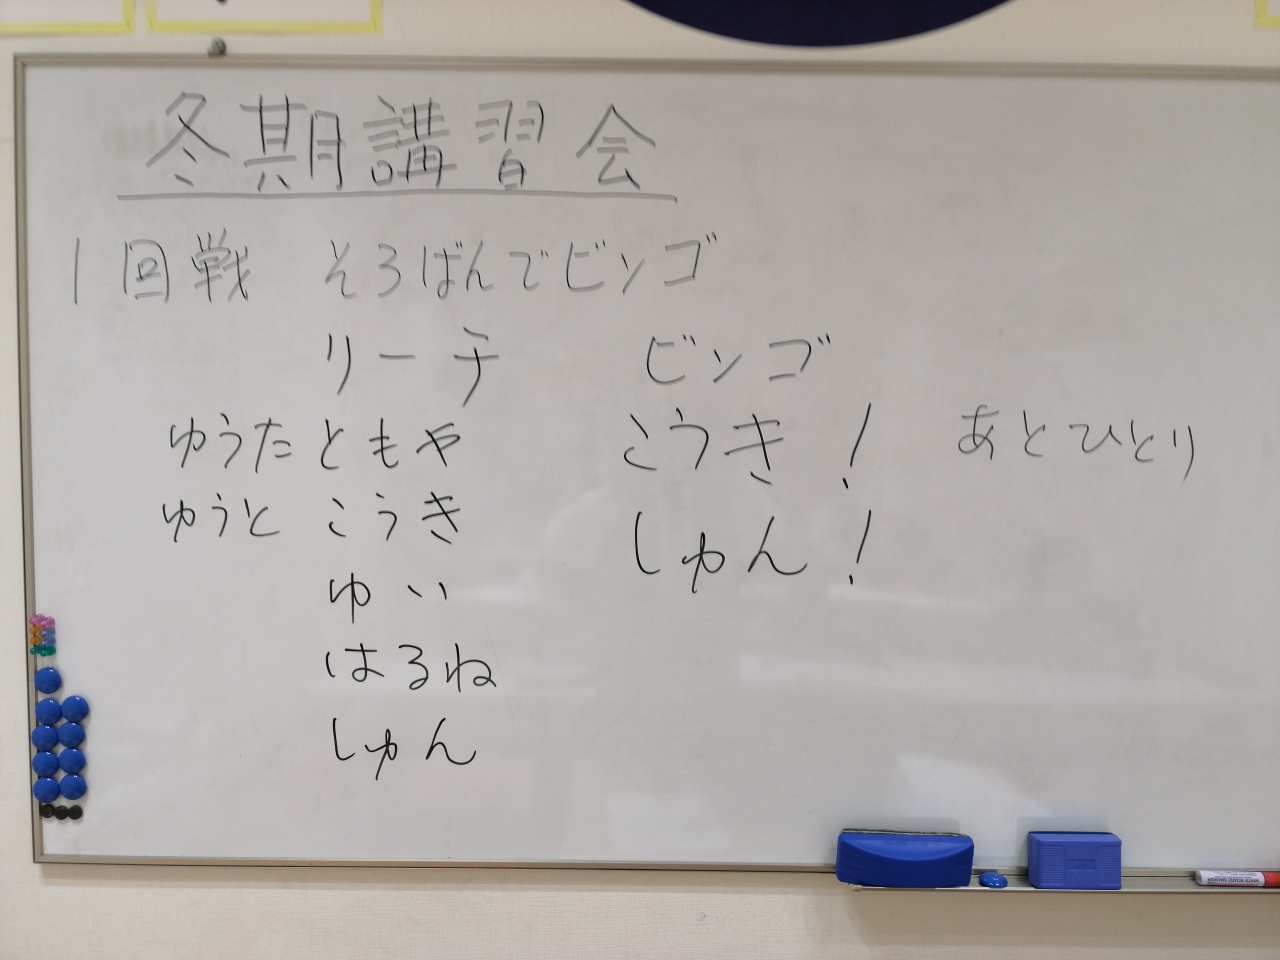 冬期講習会
1回戦 そろばんでビンゴ
リーチ ビンゴ
ゆうた ともや こうき! あとひとり
ゆうと こうき しゅん!
ゆい
はるね
しゅん